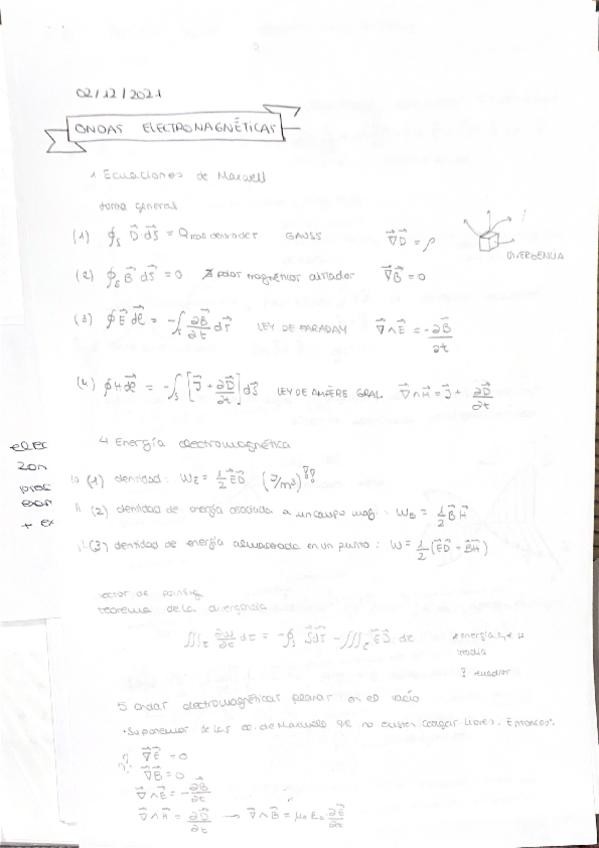 02/12/2021
ONDAS ELECTROMAGNÉTICAS
1 Ecuaciones de Maxwell
forma general
(1) ∮_S D⃗ dS⃗ = Q GAUSS ∇⃗D⃗ = ρ
DIVERGENCIA
(2) ∮_S B⃗ dS⃗ = 0 ∄ polos magnéticos ∇⃗B⃗ = 0
(3) ∮ E⃗ dℓ⃗ = -∫ ∂B⃗/∂t dS⃗ LEY DE FARADAY ∇⃗∧E⃗ = -∂B⃗/∂t
(4) ∮ H⃗ dℓ⃗ = -∫_S [J⃗ + ∂D⃗/∂t] dS⃗ LEY DE AMPÈRE GRAL ∇⃗∧H⃗ = J⃗ + ∂D⃗/∂t
4 Energía electromagnética
(1) densidad: W_E = 1/2 E⃗D⃗ (J/m³)??
(2) densidad de energía asociada a un campo mag.: W_B = 1/2 B⃗H⃗
(3) densidad de energía almacenada en un punto: W = 1/2 (E⃗D⃗ - B⃗H⃗)
vector de
teorema de la divergencia
∭_τ ∂w/∂t dτ = -∮_S S⃗ dS⃗ - ∭_τ E⃗J⃗ dτ energía
5 Ondas electromagnéticas planas en el vacío
Suponemos de las ec. de Maxwell que no existen cargas libres. Entonces:
∇⃗E⃗ = 0
∇⃗B⃗ = 0
∇⃗∧E⃗ = -∂B⃗/∂t
∇⃗∧H⃗ = ∂D⃗/∂t → ∇⃗∧B⃗ = μ₀ε₀ ∂E⃗/∂t